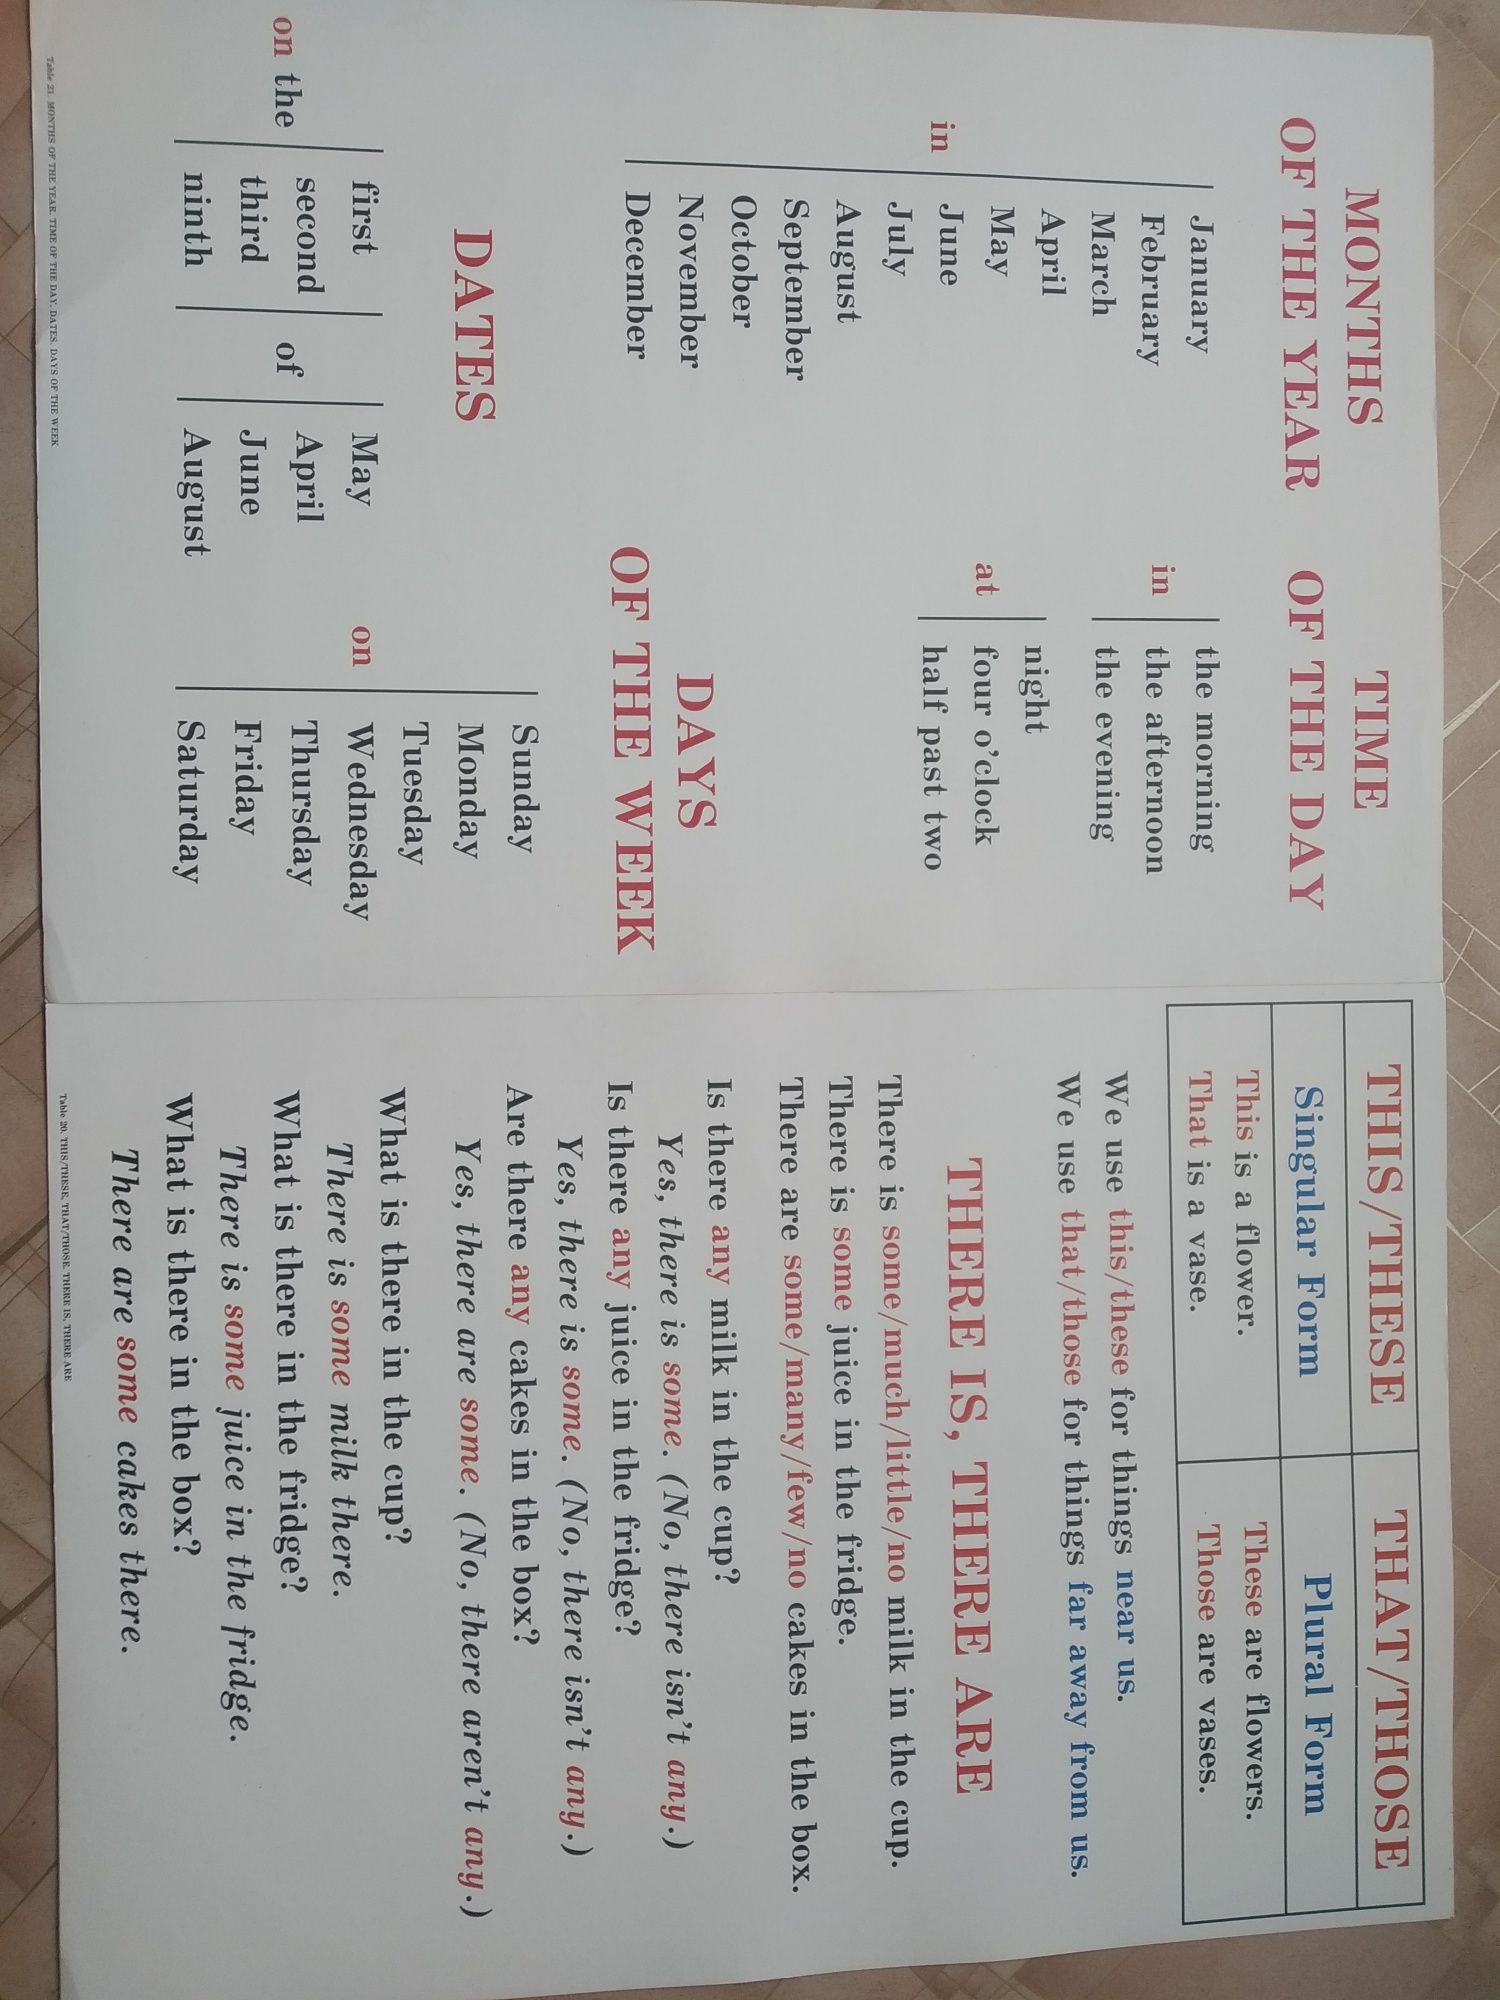 MONTHS
OF THE YEAR
in
January
February
March
April
May
June
July
August
September
October
November
December
TIME
OF THE DAY
in
the morning
the afternoon
the evening
at
night
four o’clock
half past two
DATES
on the
first
second
third
ninth
of
May
April
June
August
DAYS
OF THE WEEK
on
Sunday
Monday
Tuesday
Wednesday
Thursday
Friday
Saturday
Table 21. MONTHS OF THE YEAR. TIME OF THE DAY. DATES. DAYS OF THE WEEK
THIS/THESE THAT/THOSE
Singular Form Plural Form
This is a flower. These are flowers.
That is a vase. Those are vases.
We use this/these for things near us.
We use that/those for things far away from us.
THERE IS, THERE ARE
There is some/much/little/no milk in the cup.
There is some juice in the fridge.
There are some/many/few/no cakes in the box.
Is there any milk in the cup?
Yes, there is some. (No, there isn’t any.)
Is there any juice in the fridge?
Yes, there is some. (No, there isn’t any.)
Are there any cakes in the box?
Yes, there are some. (No, there aren’t any.)
What is there in the cup?
There is some milk there.
What is there in the fridge?
There is some juice in the fridge.
What is there in the box?
There are some cakes there.
Table 20. THIS/THESE, THAT/THOSE. THERE IS, THERE ARE